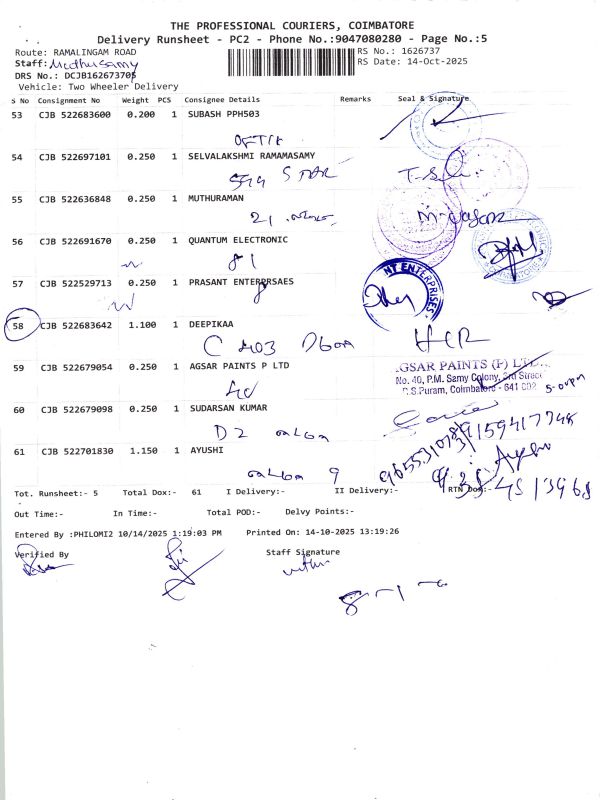 THE PROFESSIONAL COURIERS, COIMBATORE
Delivery Runsheet - PC2 - Phone No.:9047080280 - Page No.:5
Route: RAMALINGAM ROAD
RS No.: 1626737
Staff: Muthusamy
RS Date: 14-Oct-2025
DRS No.: DCJB162673705
Vehicle: Two Wheeler Delivery
S No Consignment No Weight PCS Consignee Details Remarks Seal & Signature
53 CJB 522683600 0.200 1 SUBASH PPH503
54 CJB 522697101 0.250 1 SELVALAKSHMI RAMAMASAMY
STAR
55 CJB 522636848 0.250 1 MUTHURAMAN
21
56 CJB 522691670 0.250 1 QUANTUM ELECTRONIC
81
57 CJB 522529713 0.250 1 PRASANT ENTERPRSAES
8
NT ENTERPRISES
58 CJB 522683642 1.100 1 DEEPIKAA
C 403
59 CJB 522679054 0.250 1 AGSAR PAINTS P LTD
40
AGSAR PAINTS (P) LTD.
No. 40, P.M. Samy Colony, 3rd Street
R.S.Puram, Coimbatore - 641 002
5-00pm
60 CJB 522679098 0.250 1 SUDARSAN KUMAR
D2
61 CJB 522701830 1.150 1 AYUSHI
9
Tot. Runsheet:- 5 Total Dox:- 61 I Delivery:- II Delivery:- RTN Dox:-
Out Time:- In Time:- Total POD:- Delvy Points:-
Entered By :PHILOMI2 10/14/2025 1:19:03 PM Printed On: 14-10-2025 13:19:26
Verified By Staff Signature